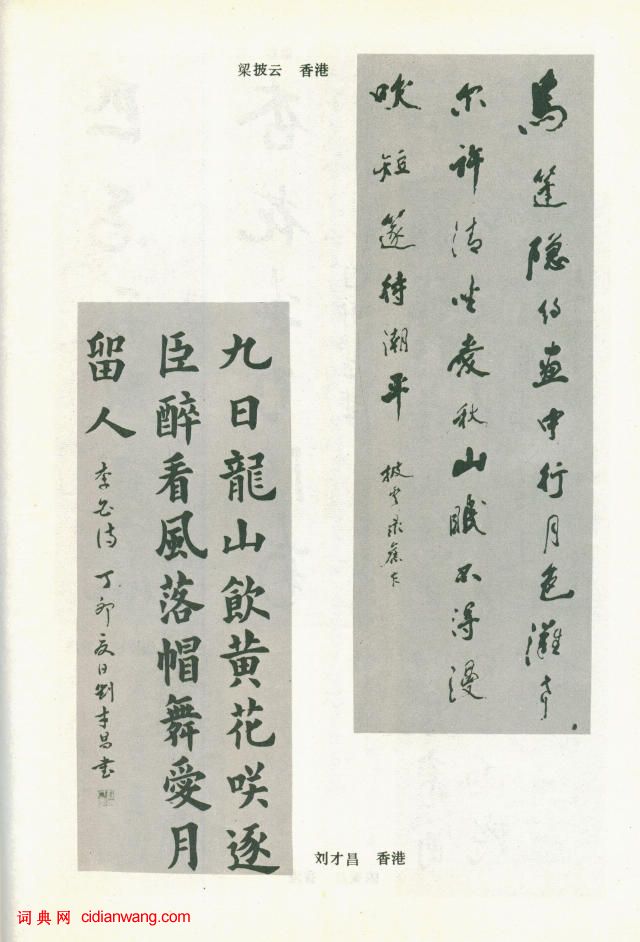 梁披云 香港
烏篷隐约画中行月色灘声
尔许清坐爱秋山眠不得漫
吹短篴待潮平 披云录旧作
九日龍山飲黄花咲逐
臣醉看風落帽舞愛月
畱人 李白诗 丁卯夏日劉才昌书
刘才昌 香港
词典网 cidianwang.com